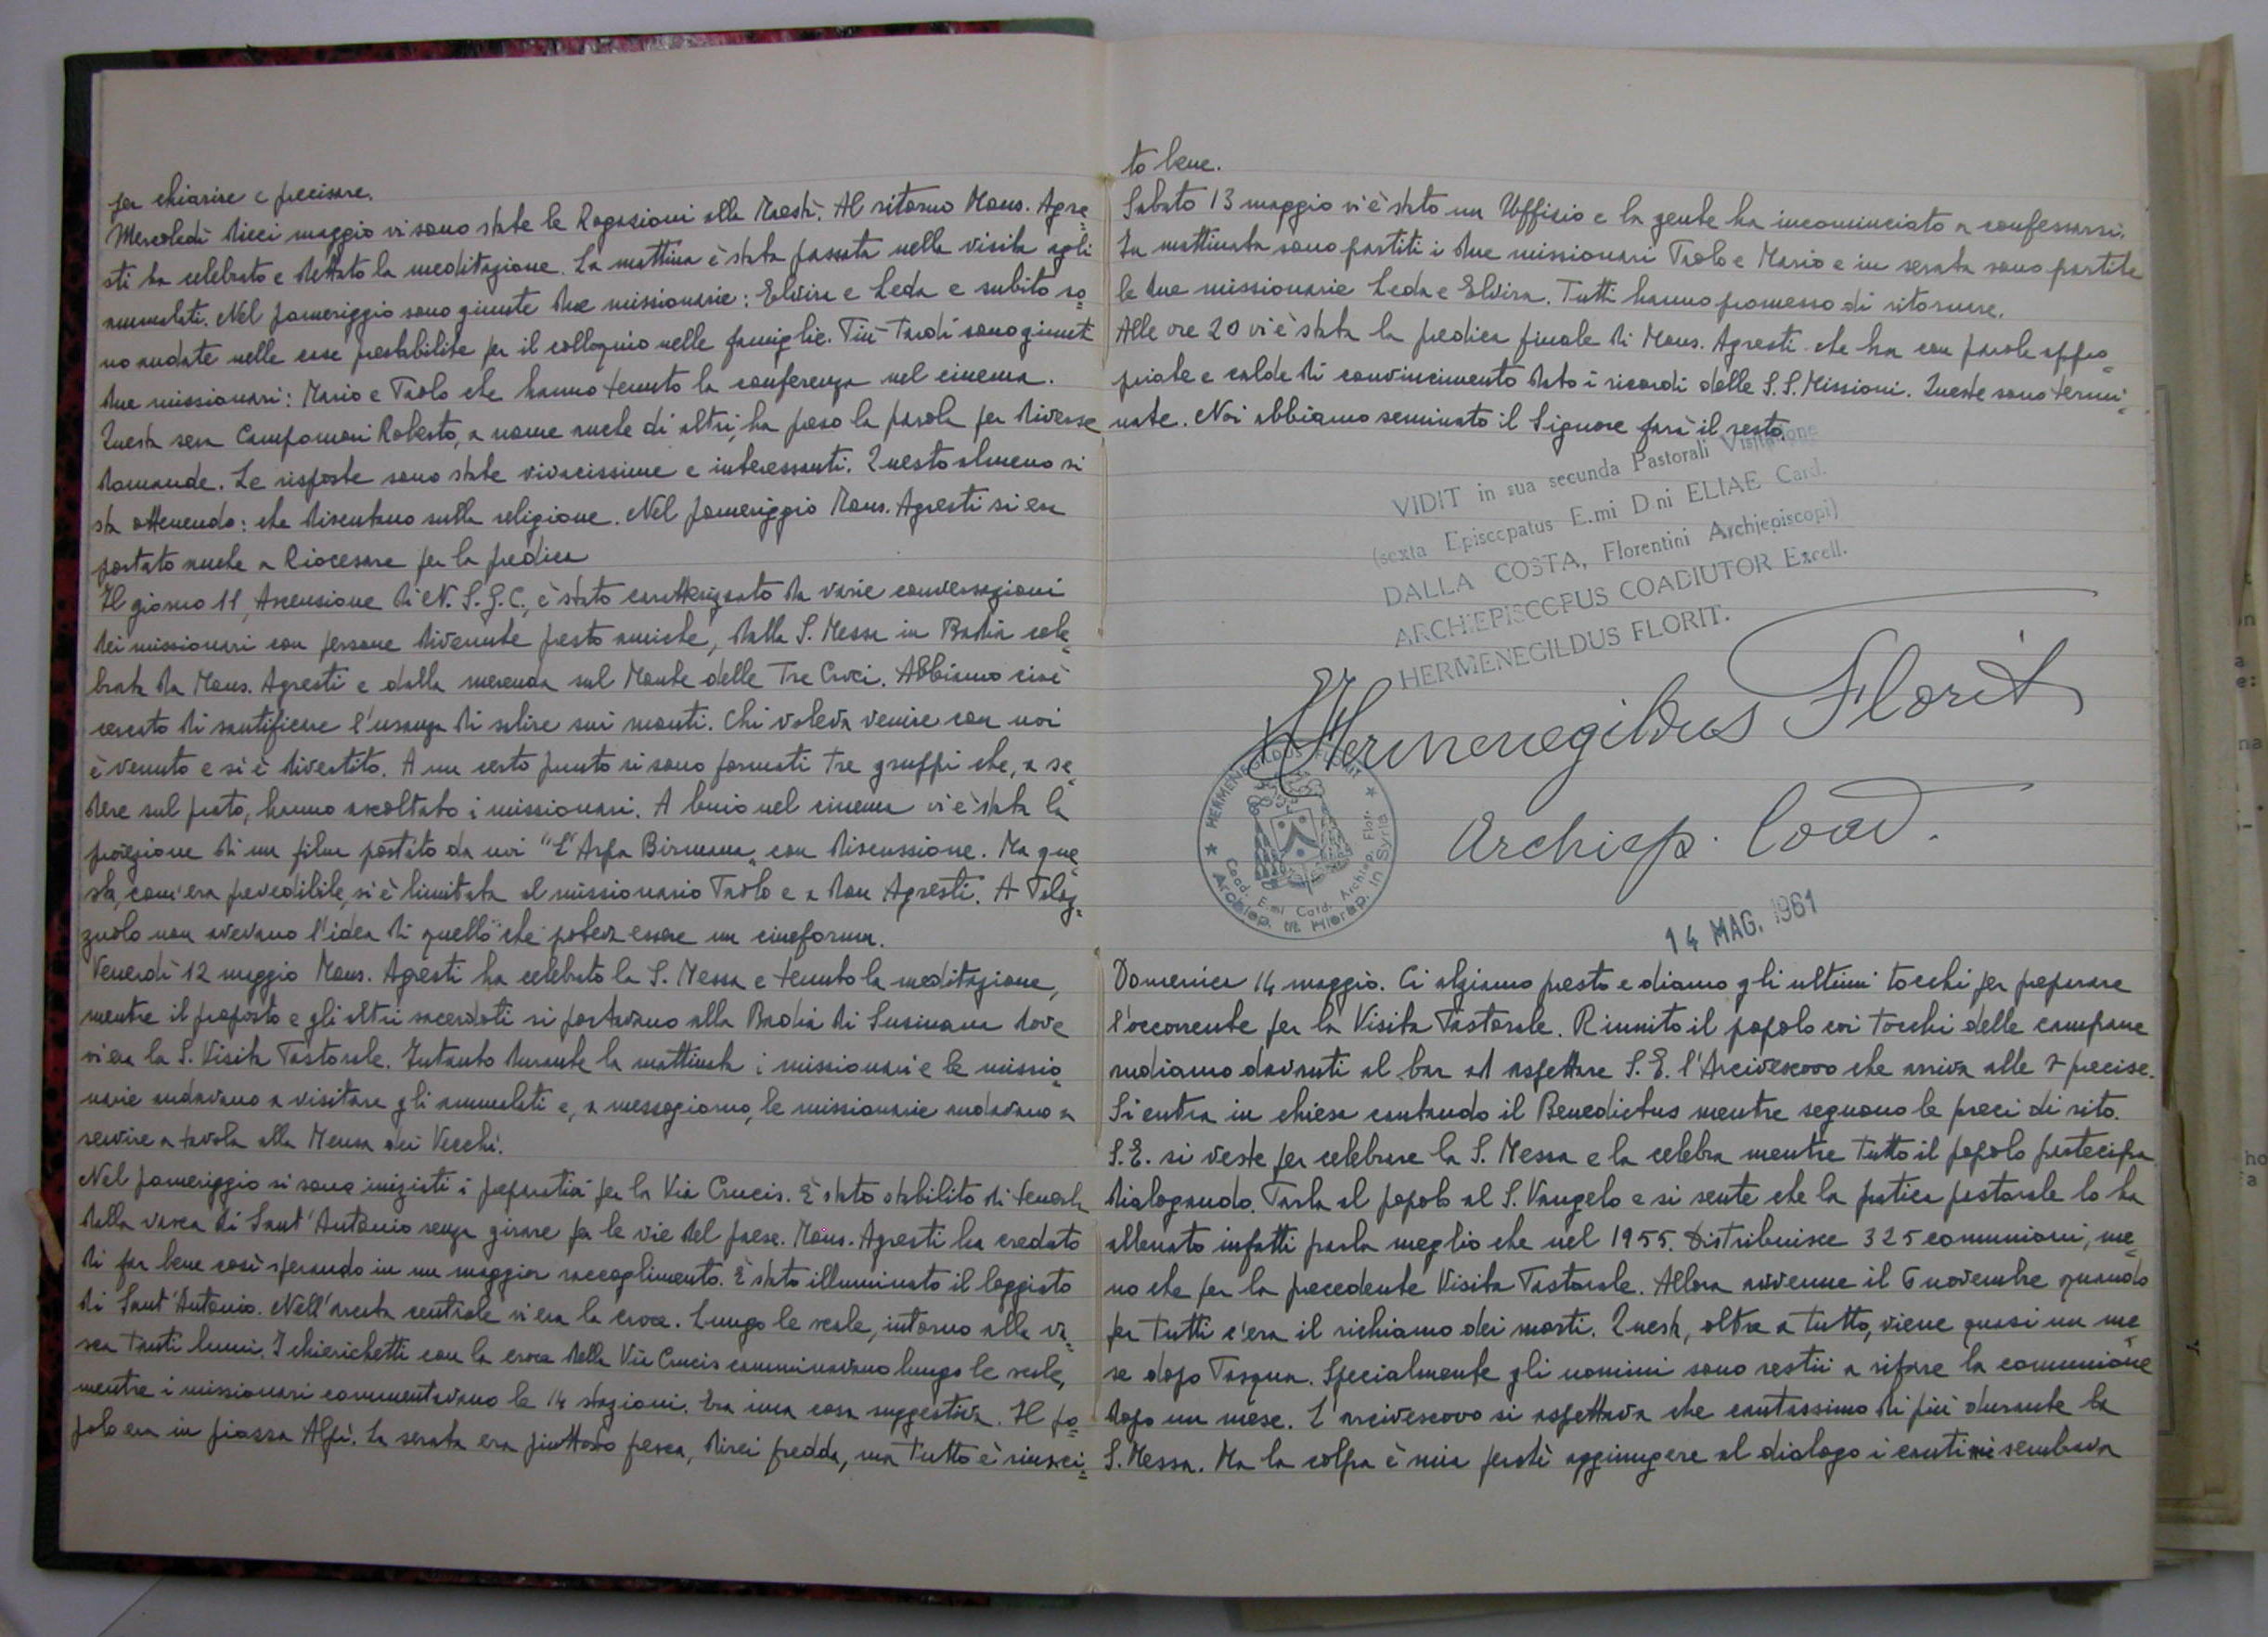 per chiarire e precisare.
Mercoledì dieci maggio vi sono state le Rogazioni alla Maestà. Al ritorno Mons. Agre=
sti ha celebrato e dettato la meditazione. La mattina è stata passata nella visita agli
ammalati. Nel pomeriggio sono giunte due missionarie: Elvira e Leda e subito so=
no andate nelle case prestabilite per il colloquio nelle famiglie. Più tardi sono giunti
due missionari: Mario e Paolo che hanno tenuto la conferenza nel cinema.
Questa sera Campomori Roberto, a nome anche di altri, ha preso la parola per diverse
domande. Le risposte sono state vivacissime e interessanti. Questo almeno si
sta ottenendo: che discutano sulla religione. Nel pomeriggio Mons. Agresti si era
portato anche a Riocesare per la predica
Il giorno 11, Ascensione di N. S. G. C., è stato caratterizzato da varie conversazioni
dei missionari con persone divenute presto amiche, dalla S. Messa in Badia cele=
brata da Mons. Agresti e dalla merenda sul Monte delle Tre Croci. Abbiamo cioè
cercato di santificare l'usanza di salire sui monti. Chi voleva venire con noi
è venuto e si è divertito. A un certo punto si sono formati tre gruppi che, a se=
dere sul prato, hanno ascoltato i missionari. A buio nel cinema vi è stata la
proiezione di un film portato da noi "L'Arpa Birmana" con discussione. Ma que=
sta, com'era prevedibile, si è limitata al missionario Paolo e a don Agresti. A Palaz=
zuolo non avevano l'idea di quello che poteva essere un cineforum.
Venerdì 12 maggio Mons. Agresti ha celebrato la S. Messa e tenuto la meditazione,
mentre il proposto e gli altri sacerdoti si portavano alla Badia di Susinana dove
vi era la S. Visita Pastorale. Intanto durante la mattinata i missionari e le missio=
narie andavano a visitare gli ammalati e, a mezzogiorno, le missionarie andavano a
servire a tavola alla Mensa dei Vecchi.
Nel pomeriggio si sono iniziati i preparativi per la Via Crucis. È stato stabilito di tenerla
dalla vasca di Sant'Antonio senza girare per le vie del paese. Mons. Agresti ha creduto
di far bene così sperando in un maggior raccoglimento. È stato illuminato il loggiato
di Sant'Antonio. Nell'arcata centrale vi era la croce. Lungo le scale, intorno alla va=
sca tanti lumi. I chierichetti con la croce della Via Crucis camminavano lungo le scale,
mentre i missionari commentavano le 14 stazioni. Era una cosa suggestiva. Il po=
polo era in piazza Alpi. La serata era piuttosto fresca, direi fredda, ma tutto è riusci=
to bene.
Sabato 13 maggio vi è stato un Uffizio e la gente ha incominciato a confessarsi.
In mattinata sono partiti i due missionari Paolo e Mario e in serata sono partite
le due missionarie Leda e Elvira. Tutti hanno promesso di ritornare.
Alle ore 20 vi è stata la predica finale di Mons. Agresti che ha con parole appro=
priate e calde di convincimento dato i ricordi delle S.S. Missioni. Queste sono termi=
nate. Noi abbiamo seminato il Signore farà il resto.
VIDIT in sua secunda Pastorali Visitatione
(sexta Episcopatus E.mi D.ni ELIAE Card.
DALLA COSTA, Florentini Archiepiscopi)
ARCHIEPISCOPUS COADIUTOR Excell.
HERMENEGILDUS FLORIT.
Hermenegildus Florit
Archiep. Coad.
HERMENEGILDUS FLORIT
Archiep. tit. Hierap. in Syria
Coad. E.mi Card. Archiep. Flor.
14 MAG. 1961
Domenica 14 maggio. Ci alziamo presto e diamo gli ultimi tocchi per preparare
l'occorrente per la Visita Pastorale. Riunito il popolo coi tocchi delle campane
andiamo davanti al bar ad aspettare S. E. l'Arcivescovo che arriva alle 7 precise.
Si entra in chiesa cantando il Benedictus mentre seguono le preci di rito.
S. E. si veste per celebrare la S. Messa e la celebra mentre tutto il popolo partecipa
dialogando. Parla al popolo al S. Vangelo e si sente che la pratica pastorale lo ha
allenato infatti parla meglio che nel 1955. Distribuisce 325 comunioni, me=
no che per la precedente Visita Pastorale. Allora avvenne il 6 novembre quando
per tutti c'era il richiamo dei morti. Questa, oltre a tutto, viene quasi un me=
se dopo Pasqua. Specialmente gli uomini sono restii a rifare la comunione
dopo un mese. L'arcivescovo si aspettava che cantassimo di più durante la
S. Messa. Ma la colpa è mia perché aggiungere al dialogo i canti mi sembrava